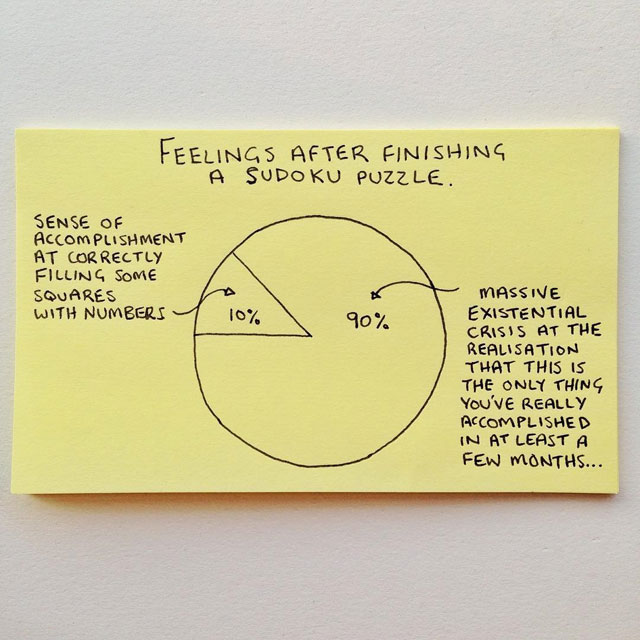 FEELINGS AFTER FINISHING
A SUDOKU PUZZLE.
SENSE OF
ACCOMPLISHMENT
AT CORRECTLY
FILLING SOME
SQUARES
WITH NUMBERS
10%
90%
MASSIVE
EXISTENTIAL
CRISIS AT THE
REALISATION
THAT THIS IS
THE ONLY THING
YOU'VE REALLY
ACCOMPLISHED
IN AT LEAST A
FEW MONTHS...